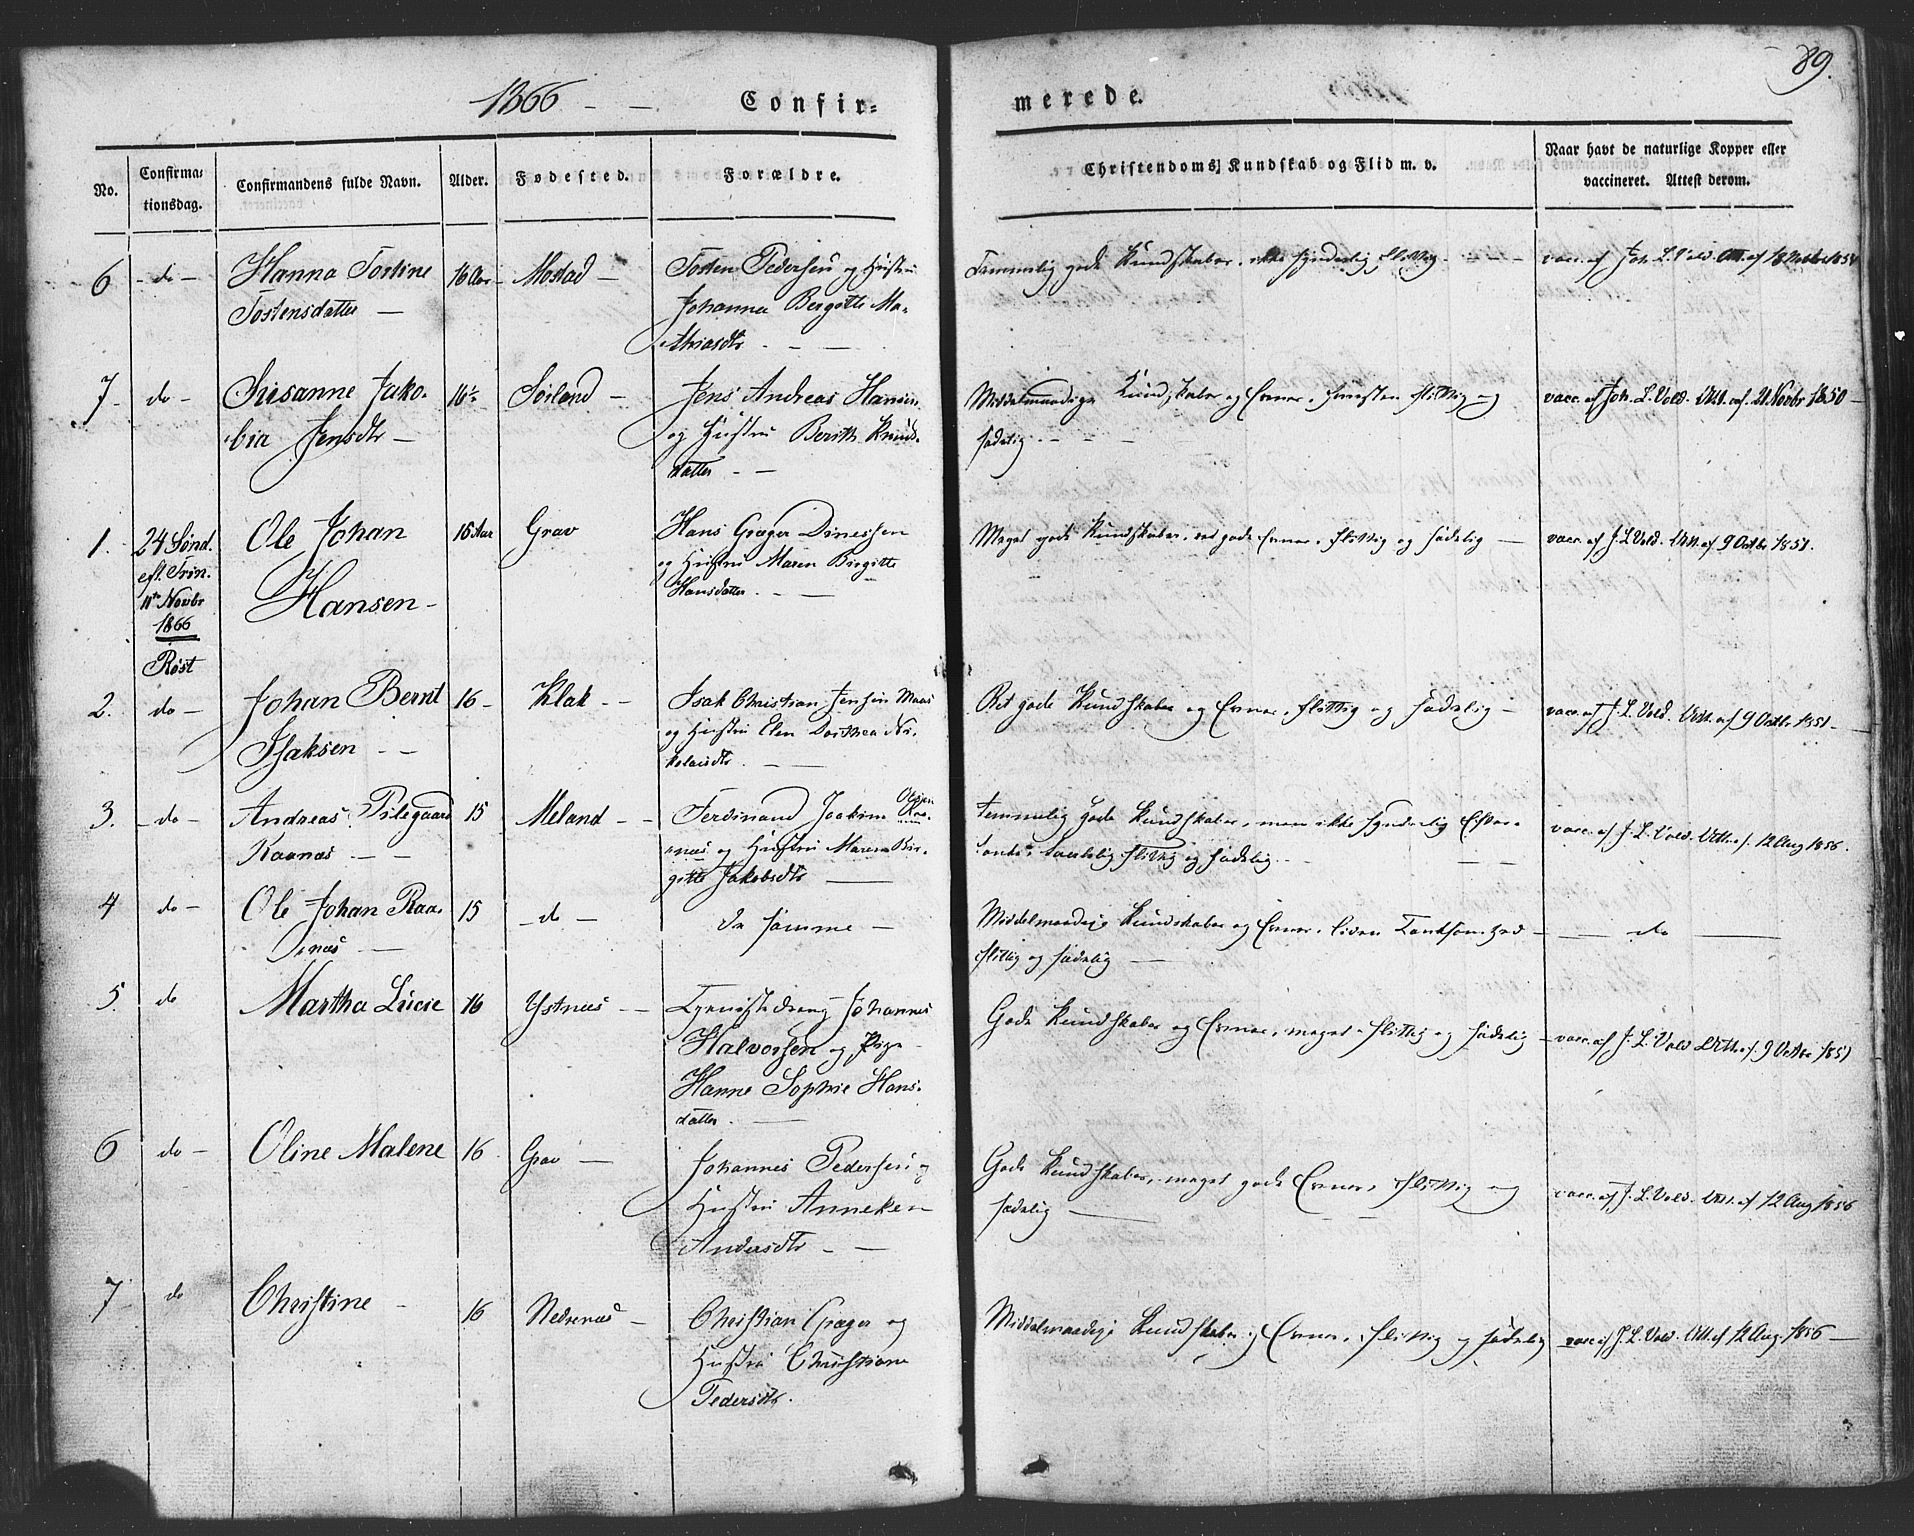 89.
1866 - - Confir= merede.
No. Confirma- Confirmandens fulde Navn. Alder. Fødested. Forældre. Christendoms Kundskab og Flid m. v. Naar havt de naturlige Kopper eller
tionsdag. vaccineret. Attest derom.
6 - do - Hanna Tostine 16 Aar - Mostad - Tosten Pedersen og Hustru Temmelig gode Kundskaber, ikke synderlig flittig - vacc. af Joh. L. Vold. Att. af
Tostensdatter - Johanna Bergitte Ma-
thiasdtr. - -
7 - do - Susanne Jako- 16½ Søiland - Jens Andreas Hansen Middelmaadige Kundskaber og Evner, flittig og vacc. af Joh. L. Vold. Att. af 21 Novbr 1850 -
bia Jensdtr - og Hustru Berith Knuds- sædelig - - -
datter - -
1. 24 Sønd. Ole Johan 15 Aar Grav Hans Græger Dinessen Meget gode Kundskaber, ret gode Evner, flittig og sædelig - vacc. af J. L. Vold. Att. af 9 Octbr 1851.
eft. Trin. og Hustru Maren Birgitte
11te Novbr Hansen - Hansdatter. - -
1866
Røst
2. do - Johan Bernt 16 - Klak - - Isak Christian Jensen Maas Ret gode Kundskaber og Evner, flittig og sædelig - vacc. af J. L. Vold. Att. af 9 Octbr. 1851 -
Isaksen - - og Hustru Elen Dorthea Ni-
kolaisdtr. - -
3. - do - Andreas Pilegaard 15 Meland - - Ferdinand Joakim Olsen Temmelig gode Kundskaber, men ikke synderlig vacc. af J. L. Vold. Att. af 12 Aug 1856.
Raanæs - - og Hustru Maren Bir- flittig og sædelig - -
gitte Jakobsdtr -
4 do - Ole Johan Raa- 15 - do - de samme - Middelmaadige Kundskaber og Evner, liden - do -
næs - - flittig og sædelig -
5. do Martha Lucie 16 Ystnæs - - Johannes Gode Kundskaber og Evner, meget flittig og sædelig - vacc. af J. L. Vold Att. af 9 Octbr 1851
Halvorsen og Pige
Hanne Sophie Hans-
datter. -
6 do - Oline Malene 16 Grav - Johannes Pedersen og Gode Kundskaber, meget gode Evner, flittig og vacc. af J. L. Vold. Att. af 12 Aug 1856
Hustru Anneken sædelig -
Andersdtr - -
7 - do Christine - 16 Nedrenæs - Christian Græger og Middelmaadige Kundskaber og Evner, flittig og sædelig vacc af J. L. Vold. Att af 12 Aug. 1856 -
Hustru Christiane
Pedersdtr.